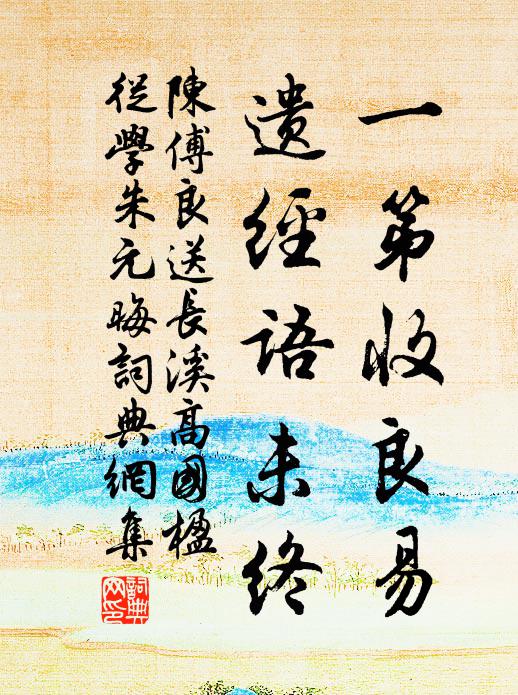 一第收良易
遺經語未終
陳傅良送長溪高國楹
從學朱元晦詞典網集
詞典